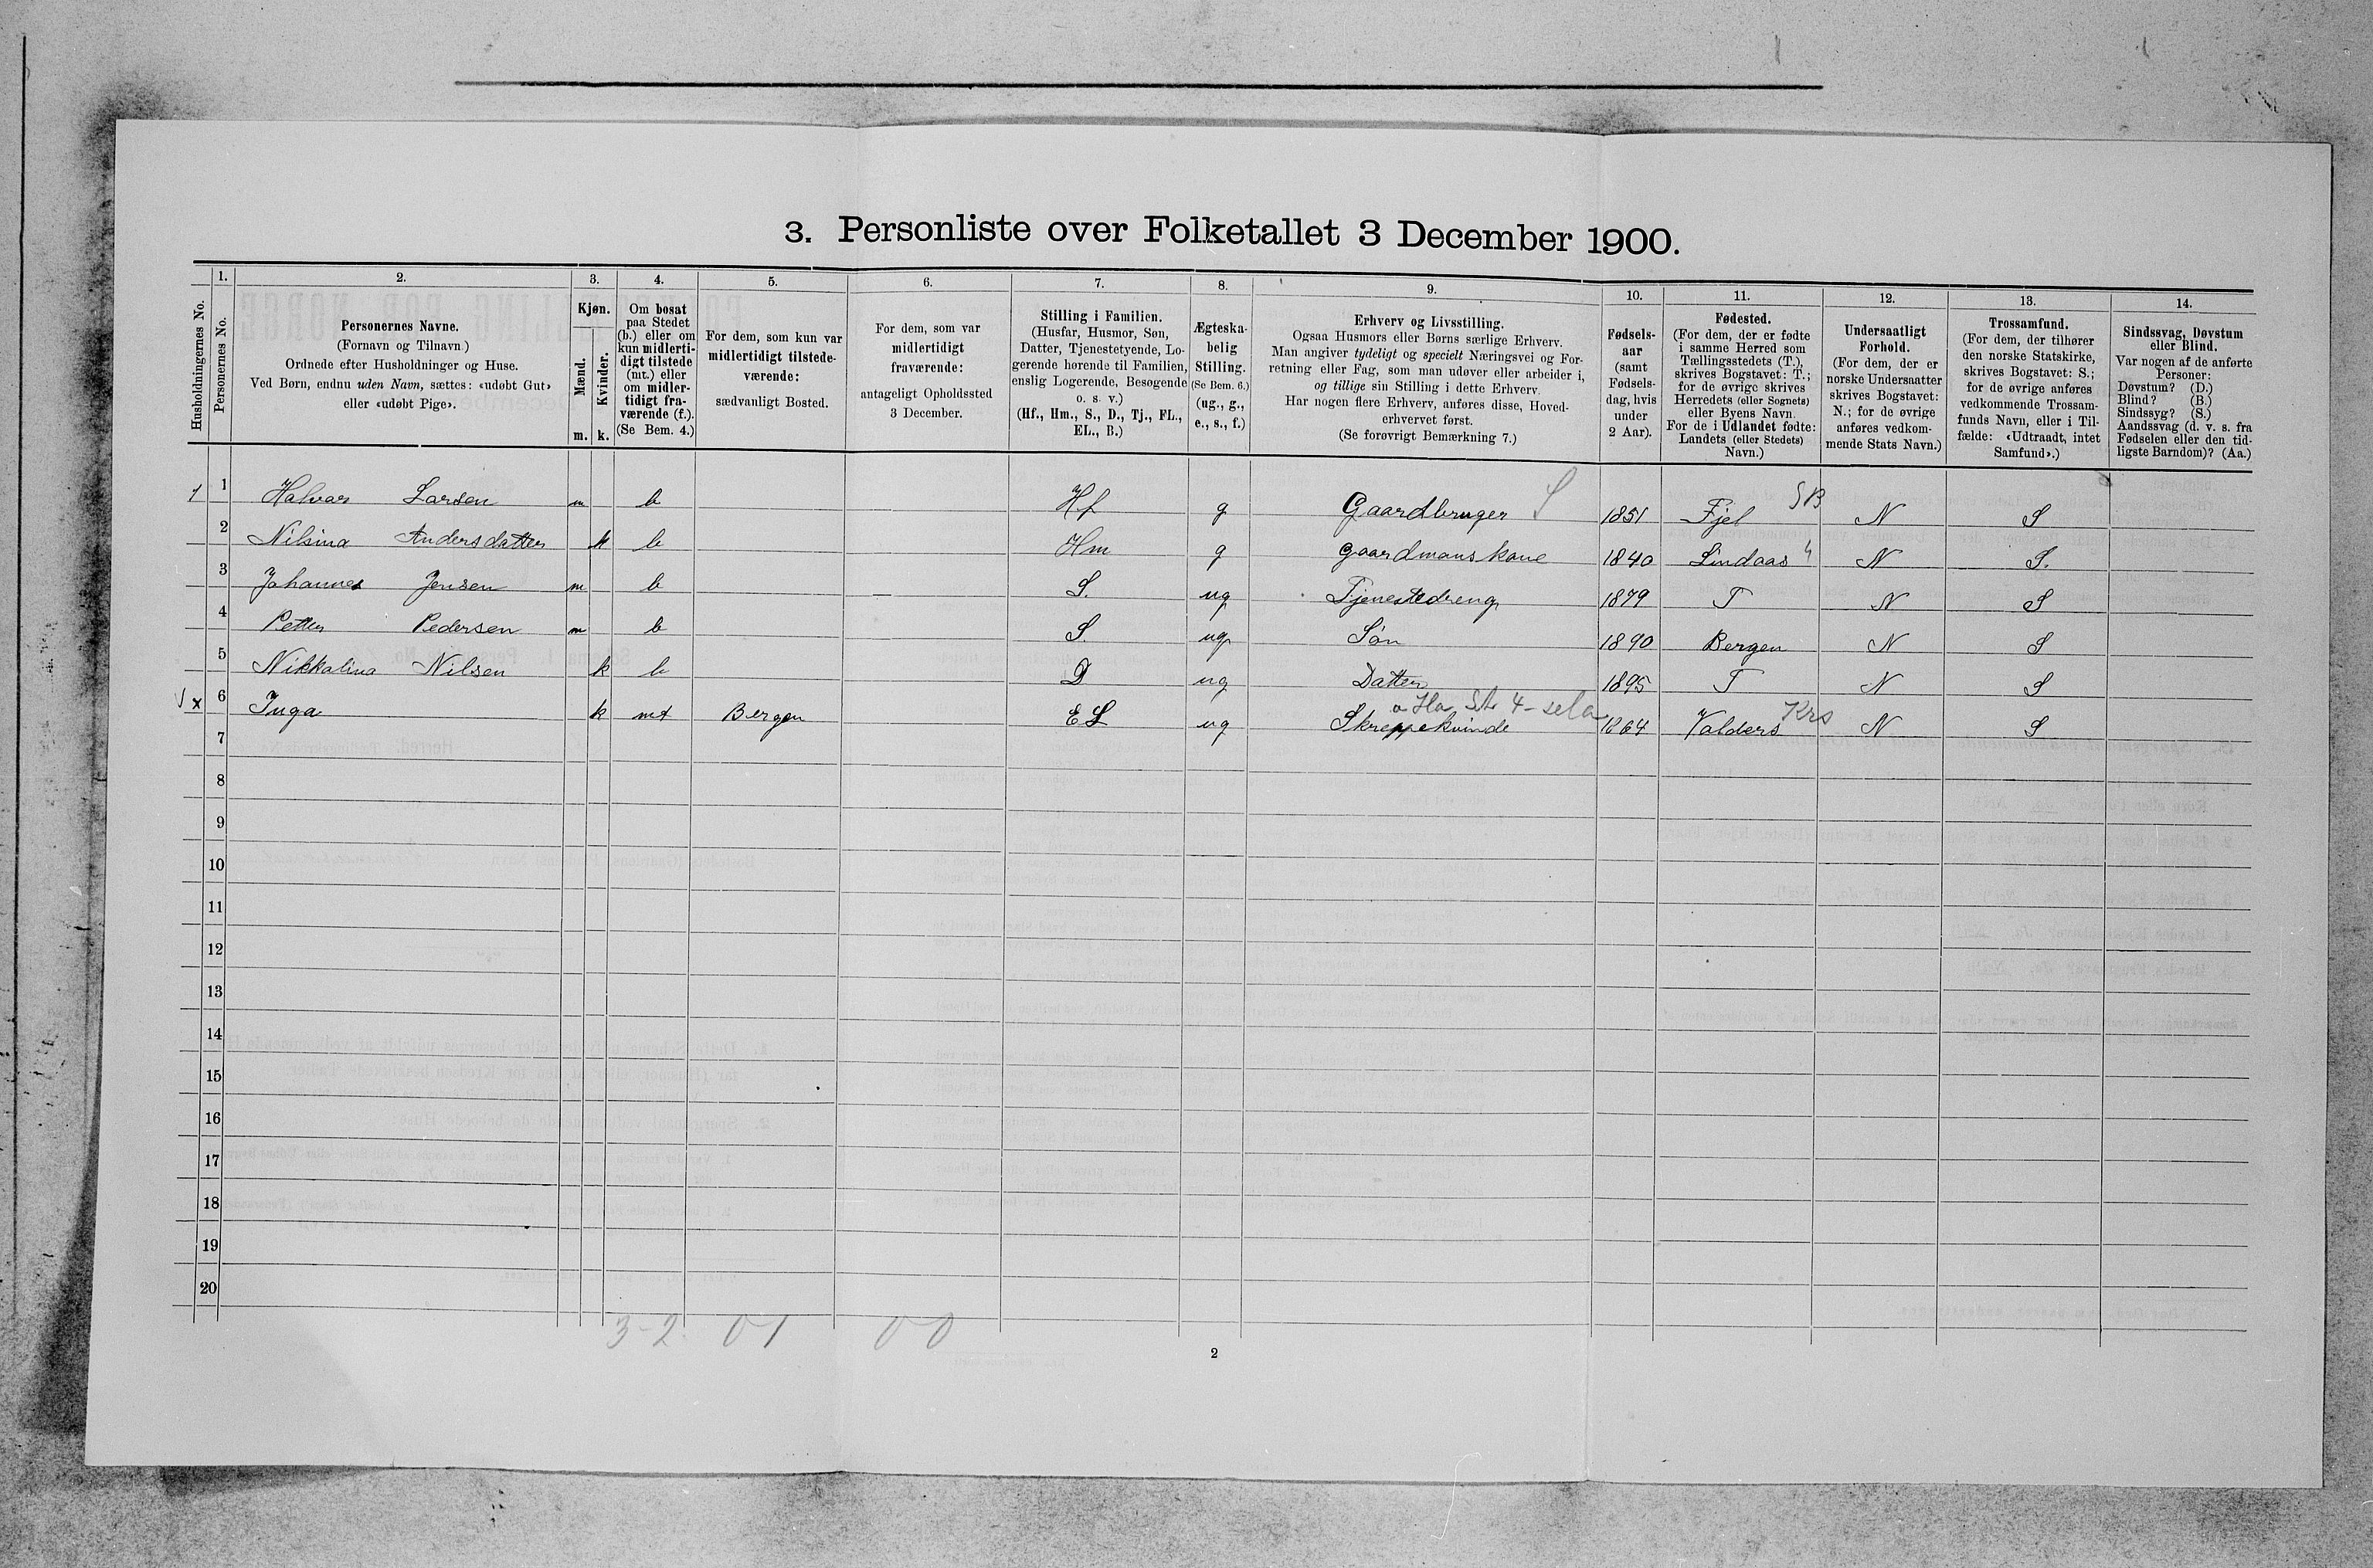 3. Personliste over Folketallet 3 December 1900.
Husholdningernes No.
1.
Personernes No.
2.
Personernes Navne.
(Fornavn og Tilnavn)
Ordnede efter Husholdninger og Huse.
Ved Børn, endnu uden Navn, sættes: «udøbt Gut»
eller «udøbt Pige».
3.
Kjøn.
Mænd.
Kvinder.
m. k.
4.
Om bosat
paa Stedet
(b.) eller om
kun midlerti-
digt tilstede
(mt.) eller
om midler-
tidigt fra-
værende (f.).
(Se Bem. 4.)
5.
For dem, som kun var
midlertidigt tilstede-
værende:
sædvanligt Bosted.
6.
For dem, som var
midlertidigt
fraværende:
antageligt Opholdssted
3 December.
7.
Stilling i Familien.
(Husfar, Husmor, Søn,
Datter, Tjenestetyende, Lo-
gerende hørende til Familien,
enslig Logerende, Besøgende
o. s. v.)
(Hf., Hm., S., D., Tj., FL.,
EL., B.)
8.
Ægteska-
belig
Stilling.
(Se Bem. 6.)
(ug., g.,
e., s., f.)
9.
Erhverv og Livsstilling.
Ogsaa Husmors eller Børns særlige Erhverv.
Man angiver tydeligt og specielt Næringsvei og For-
retning eller Fag, som man udøver eller arbeider i,
og tillige sin Stilling i dette Erhverv.
Har nogen flere Erhverv, anføres disse, Hoved-
erhvervet først.
(Se forøvrigt Bemærkning 7.)
10.
Fødsels-
aar
(samt
Fødsels-
dag, hvis
under
2 Aar).
11.
Fødested.
(For dem, der er fødte
i samme Herred som
Tællingsstedets (T.),
skrives Bogstavet: T.;
for de øvrige skrives
Herredets (eller Sognets)
eller Byens Navn.
For de i Udlandet fødte:
Landets (eller Stedets)
Navn.)
12.
Undersaatligt
Forhold.
(For dem, der er
norske Undersaatter
skrives Bogstavet:
N.; for de øvrige
anføres vedkom-
mende Stats Navn.)
13.
Trossamfund.
(For dem, der tilhører
den norske Statskirke,
skrives Bogstavet: S.;
for de øvrige anføres
vedkommende Trossam-
funds Navn, eller i Til-
fælde: «Udtraadt, intet
Samfund».)
14.
Sindssvag, Døvstum
eller Blind.
Var nogen af de anførte
Personer:
Døvstum? (D.)
Blind? (B.)
Sindssyg? (S.)
Aandssvag (d. v. s. fra
Fødselen eller den tid-
ligste Barndom)? (Aa.)
1 1 Halvar Larsen m b Hf g Gaardbruger S 1851 Fjel SB N S
2 Nilsina Andersdatter k b Hm g Gaardmanskone 1840 Lindaas 4 N S.
3 Johannes Jensen m b S. ug Tjenestedreng 1879 T N S
4 Petter Pedersen m b S. ug Søn 1890 Bergen N S
5 Nikkalina Nilsen k b D ug Datter 1895 T N S
x 6 Inga k mt Bergen EL ug Skreppekvinde 1864 Valders Krs N S
7
8
9
10
11
12
13
14
15
16
17
18
19
20
3-2 01 00
2